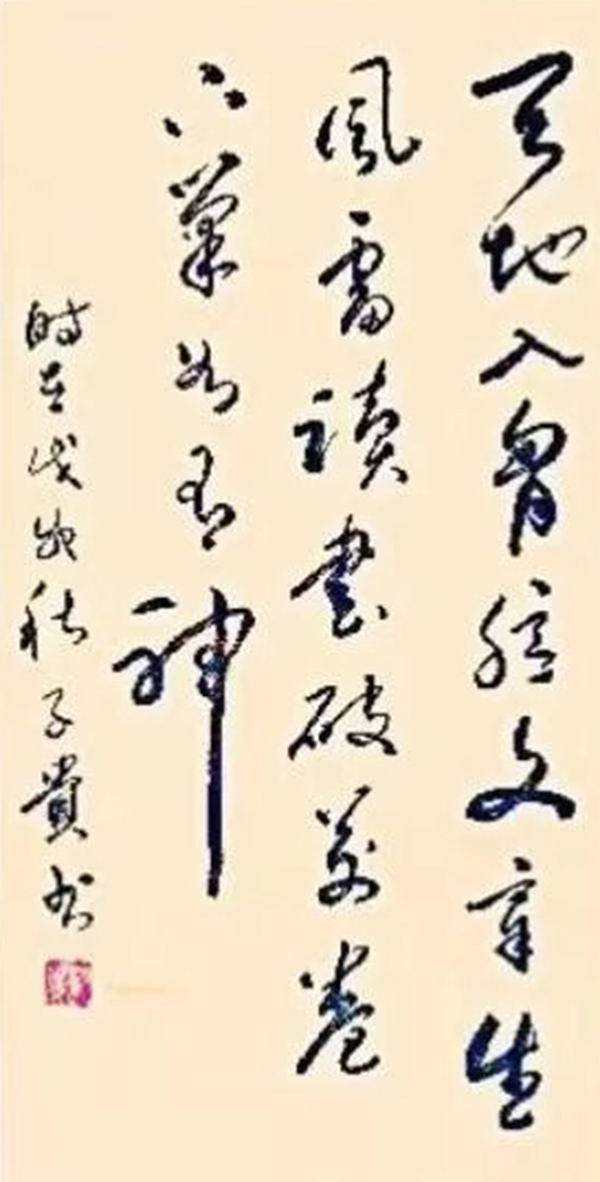 天地入胸臆文章生
風雷讀書破萬卷
下筆如有神
時在戊戌秋子貴书